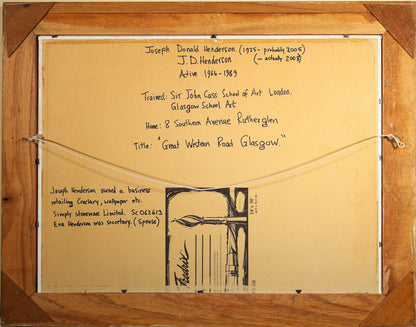 Joseph Donald Henderson. (1925 - probably 2005)
J.D. Henderson (— actually 2008)
Active 1964 - 1989
Trained: Sir John Cass School of Art London.
Glasgow School Art
Home: 8 Southern Avenue Rutherglen
Title: "Great Western Road Glasgow."
Joseph Henderson owned a business
retailing Crockery, wallpaper etc.
Simply stoneware Limited. Sc062613
Eva Henderson was secretary. (Spouse)
Fredrix